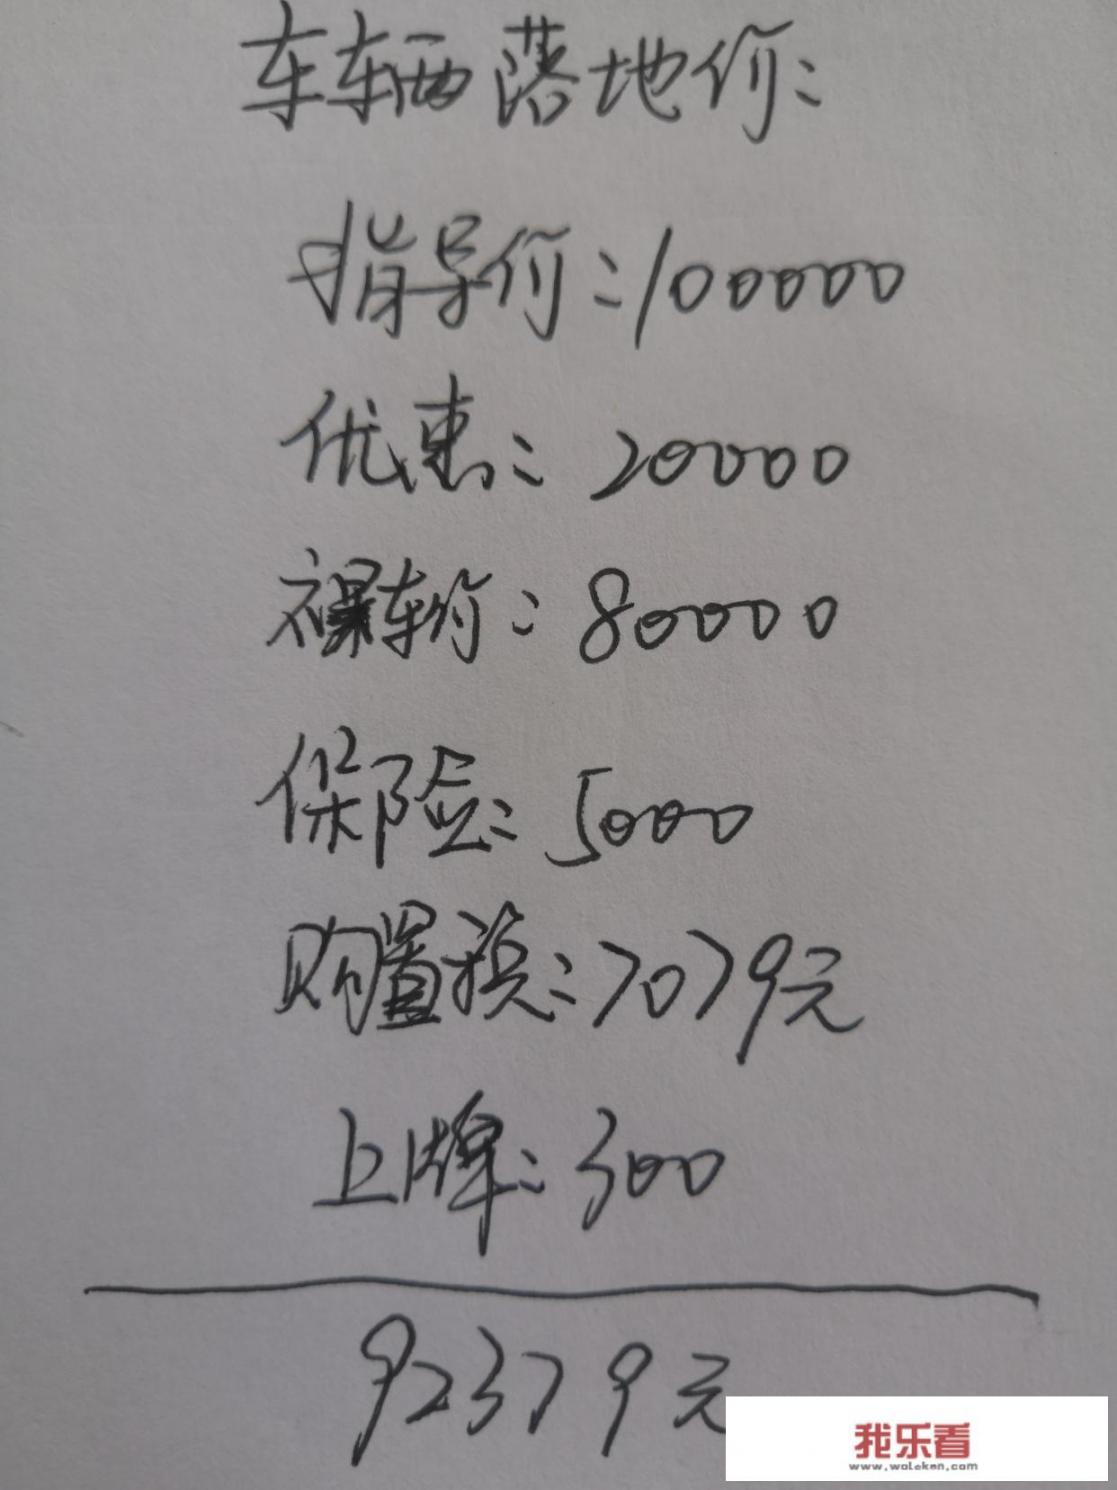 车辆落地价:
指导价:100000
优惠:20000
裸车价:80000
保险:5000
购置税:7079元
上牌:300
92379元
我乐看
www.woleken.com